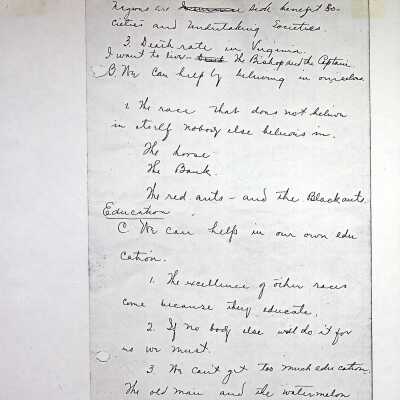 Negroes are side benefit So-
cieties and Undertaking Societies.
3. Death rate in Virginia.
I want to live — The Bishop and the Captain
B. We can help by believing in ourselves
1. The race that does not believe
in itself nobody else believes in.
The horse
The Bank.
The red ants — and the Black ants.
Education
C. We can help in our own edu
cation.
1. The excellence of other races
come because they educate.
2. If no body else will do it for
us we must.
3. We can't get too much education.
The old man and the watermelon